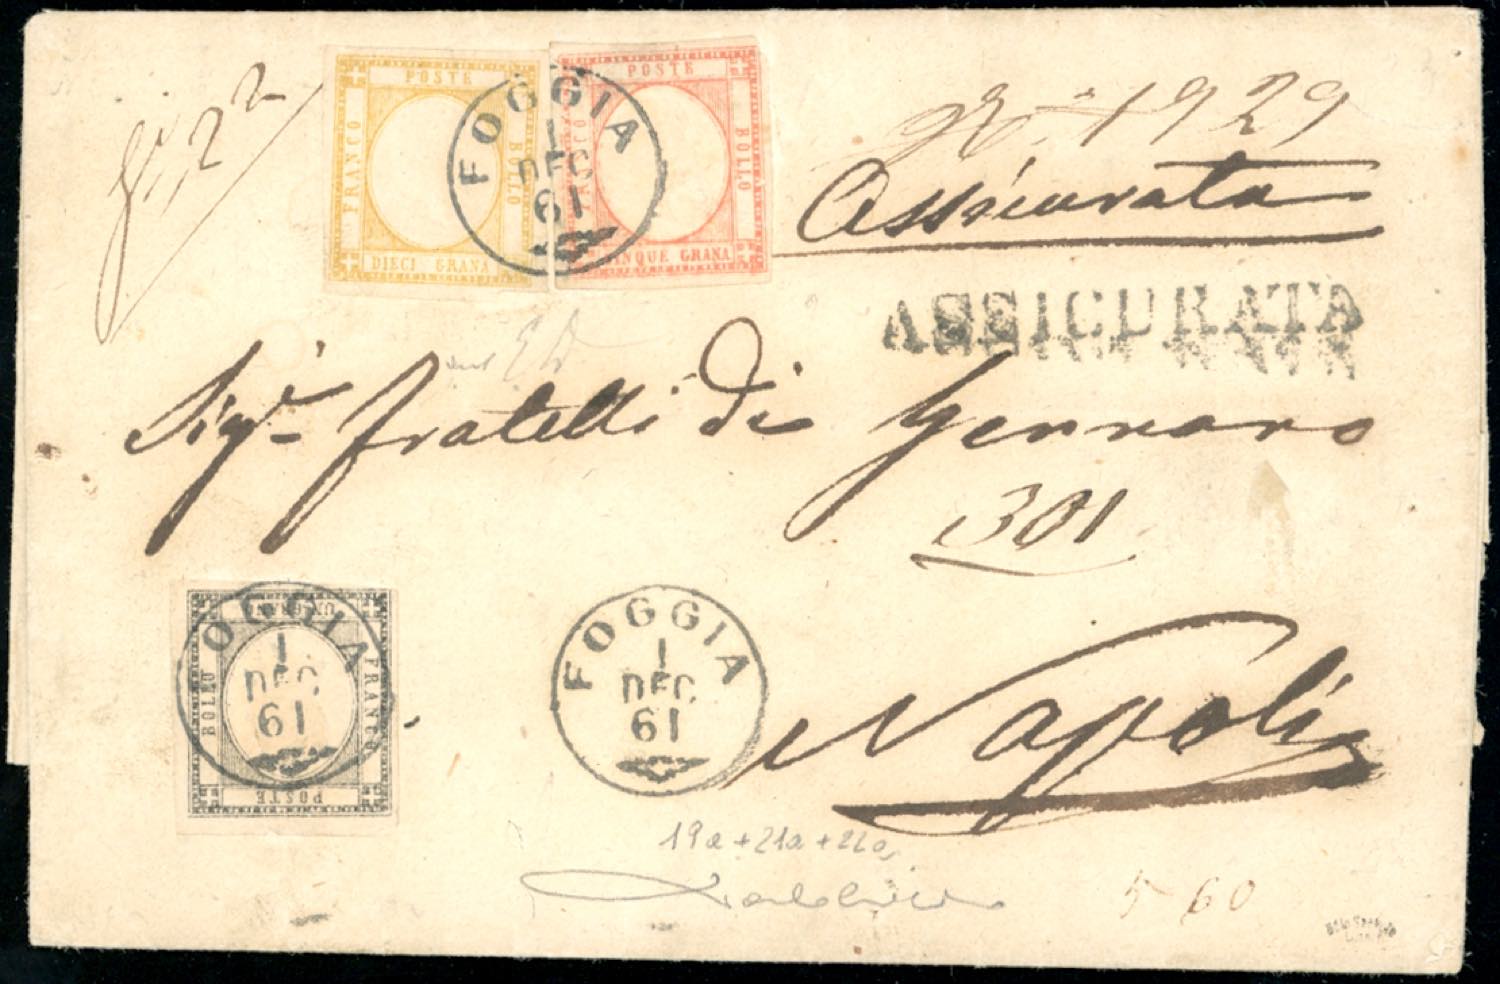 POSTE
FRANCO
BOLLO
DIECI GRANA
POSTE
BOLLO
CINQUE GRANA
FOGGIA
1
DEC
61
N. 1929
Assicurata
ASSICURATA
Sigri fratelli di Gennaro
301
UN GRANO
BOLLO
FRANCO
POSTE
FOGGIA
1
DEC
61
FOGGIA
1
DEC
61
Napoli
19a + 21a + 22a
5 60